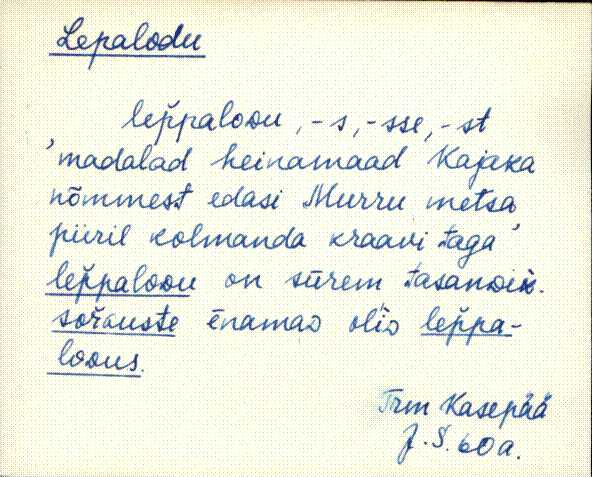 Lepalodu
lep̆paloᴅu, -s, -sse, -st
'madalad heinamaad Kajaka
nõmmest edasi Murru metsa
piiril kolmanda kraavi taga'
lep̆paloᴅu on sūrem tasanᴅik.
enamaᴅ oliᴅ lep̆pa-
loᴅus.
Trm Kasepää
J. S. 60 a.